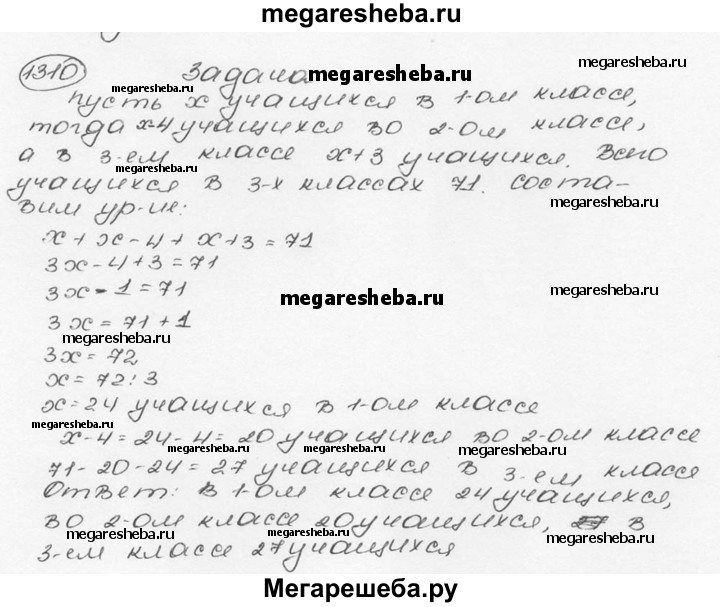 megaresheba.ru
1310 Задача megaresheba.ru
megaresheba.ru
пусть x учащихся в 1-ом классе,
тогда x-4 учащихся во 2-ом классе,
megaresheba.ru
а в 3-ем классе x+3 учащихся. Всего
megaresheba.ru
учащихся в 3-х классах 71. Соста-
вим ур-ие:
megaresheba.ru
x + x - 4 + x + 3 = 71
3x - 4 + 3 = 71
3x - 1 = 71
megaresheba.ru
megaresheba.ru
3x = 71 + 1
megaresheba.ru
megaresheba.ru
3x = 72
x = 72 : 3
x = 24 учащихся в 1-ом классе
megaresheba.ru
megaresheba.ru
x - 4 = 24 - 4 = 20 учащихся во 2-ом классе
71 - 20 - 24 = 27 учащихся в 3-ем классе
Ответ: в 1-ом классе 24 учащихся,
во 2-ом классе 20 учащихся, в
megaresheba.ru
megaresheba.ru
3-ем классе 27 учащихся
Мегарешеба.ру